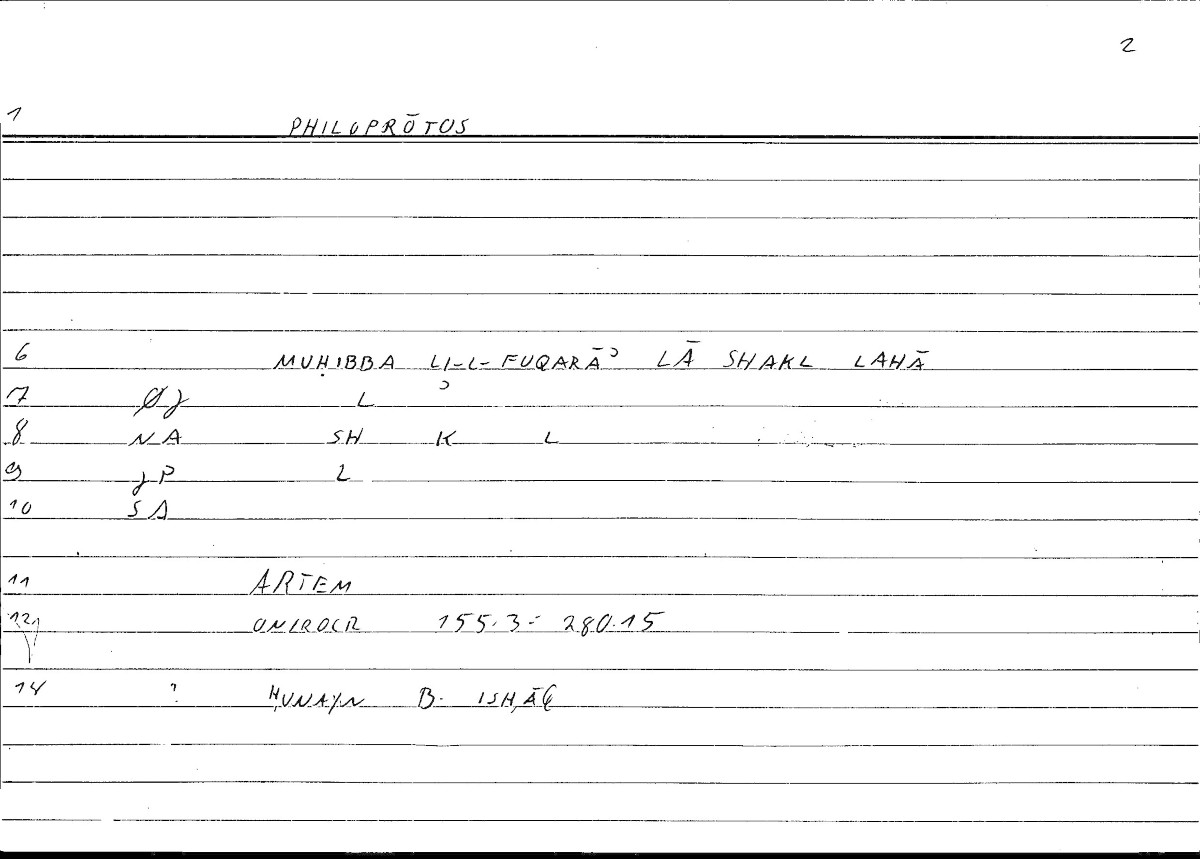 2
1 PHILOPRŌTOS
6 MUḤIBBA LI-L-FUQARĀʾ LĀ SHAKL LAHĀ
7 L ʾ
8 NA SH K L
9 P L
10 SA
11 ARTEM
12 ONIROCR 155.3 = 280.15
14 ? ḤUNAYN B. ISḤĀQ